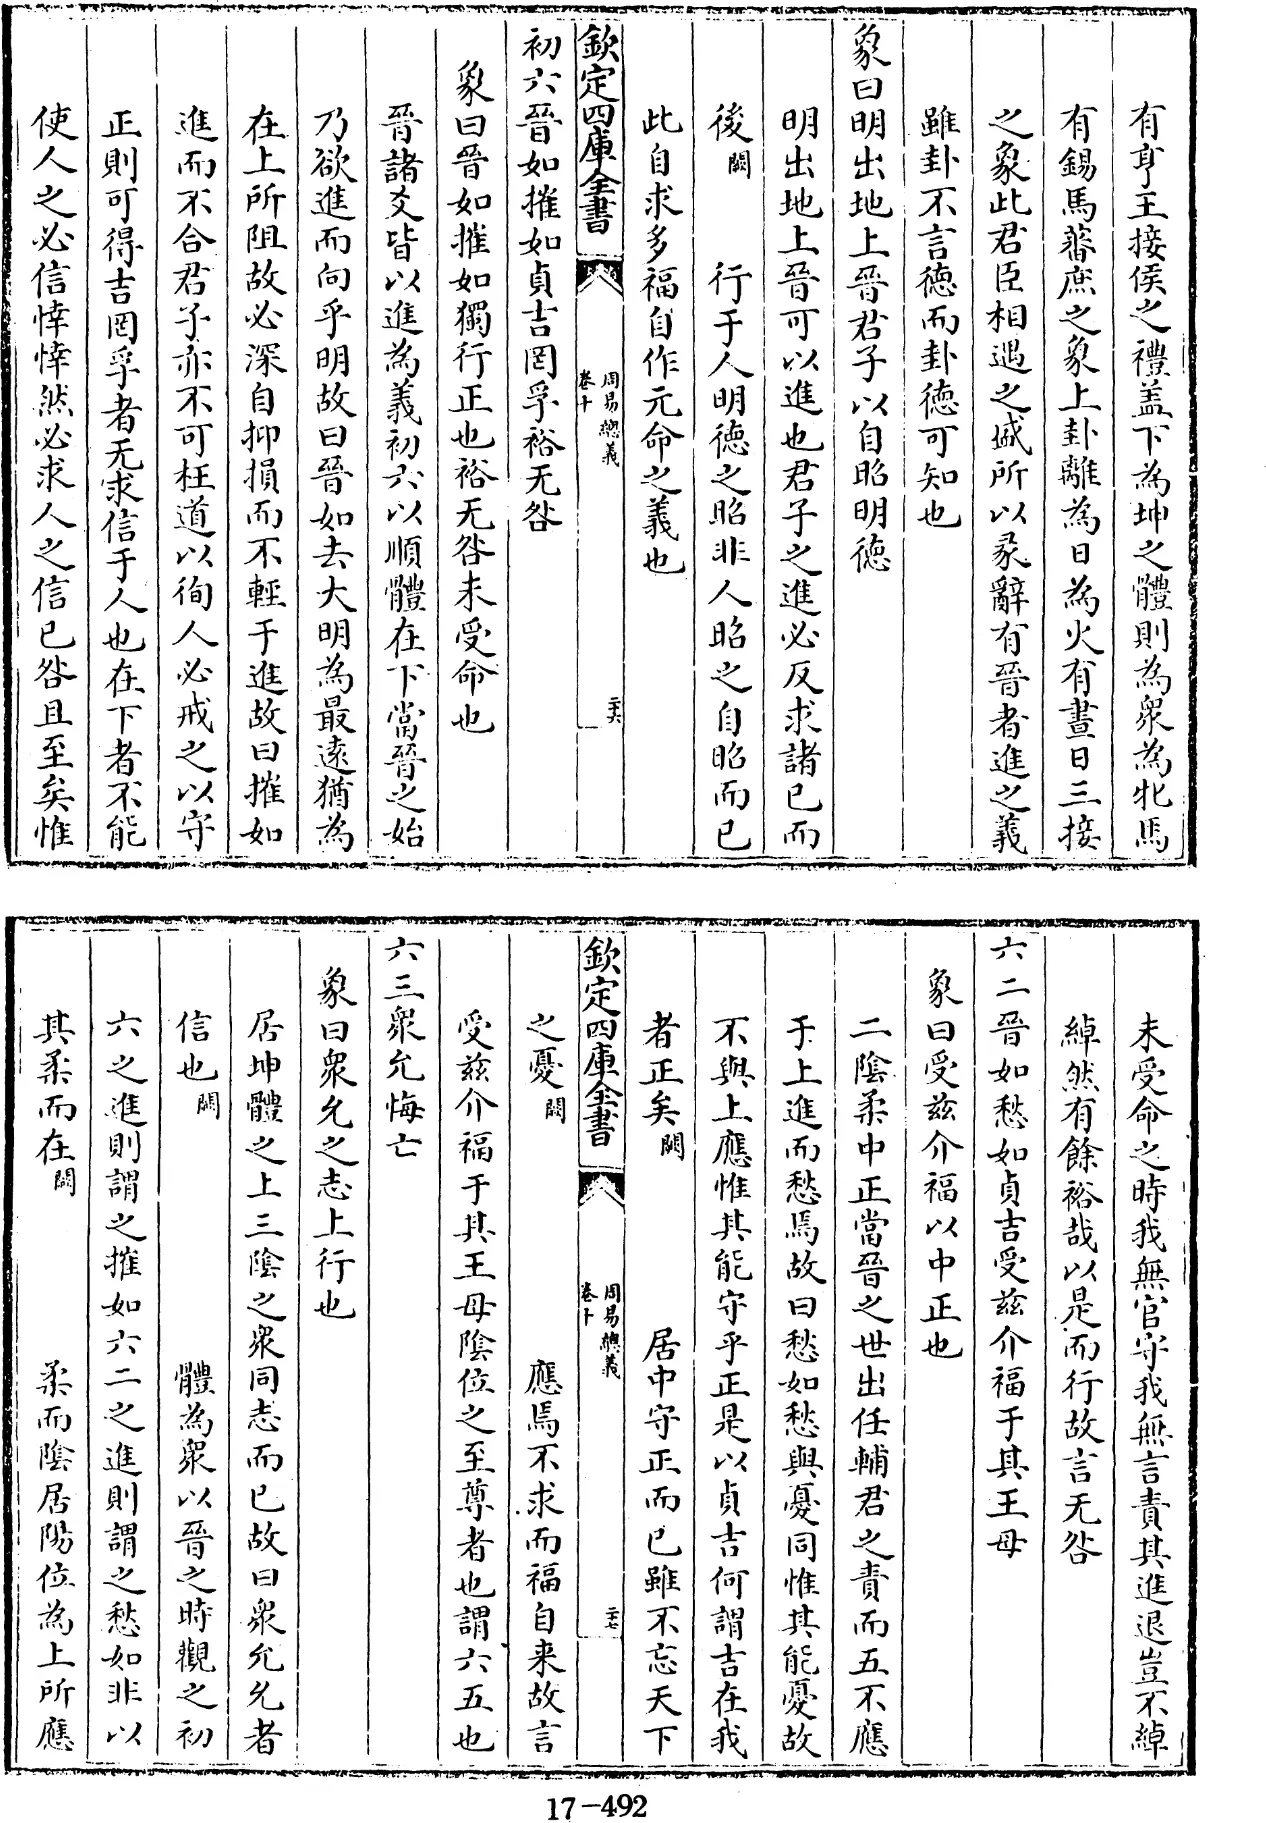 有亨王接侯之禮盖下為坤之體則為衆為牝馬
有錫馬蕃庶之象上卦離為日為火有晝日三接
之象此君臣相遇之盛所以彖辭有晉者進之義
雖卦不言德而卦德可知也
象曰明出地上晉君子以自昭明德
明出地上晉可以進也君子之進必反求諸已而
後闕　行于人明德之昭非人昭之自昭而已
此自求多福自作元命之義也
欽定四庫全書　周易總義卷十　二十六
初六晉如摧如貞吉罔孚裕无咎
象曰晉如摧如獨行正也裕无咎未受命也
晉諸爻皆以進為義初六以順體在下當晉之始
乃欲進而向乎明故曰晉如去大明為最遠猶為
在上所阻故必深自抑損而不輕于進故曰摧如
進而不合君子亦不可枉道以徇人必戒之以守
正則可得吉罔孚者无求信于人也在下者不能
使人之必信悻悻然必求人之信已咎且至矣惟
未受命之時我無官守我無言責其進退豈不綽
綽然有餘裕哉以是而行故言无咎
六二晉如愁如貞吉受兹介福于其王母
象曰受兹介福以中正也
二陰柔中正當晉之世出任輔君之責而五不應
于上進而愁焉故曰愁如愁與憂同惟其能憂故
不與上應惟其能守乎正是以貞吉何謂吉在我
者正矣闕　居中守正而已雖不忘天下
欽定四庫全書　周易總義卷十　二十七
之憂闕　應焉不求而福自来故言
受兹介福于其王母陰位之至尊者也謂六五也
六三衆允悔亡
象曰衆允之志上行也
居坤體之上三陰之衆同志而已故曰衆允允者
信也闕　體為衆以晉之時觀之初
六之進則謂之摧如六二之進則謂之愁如非以
其柔而在闕　柔而陰居陽位為上所應
17-492